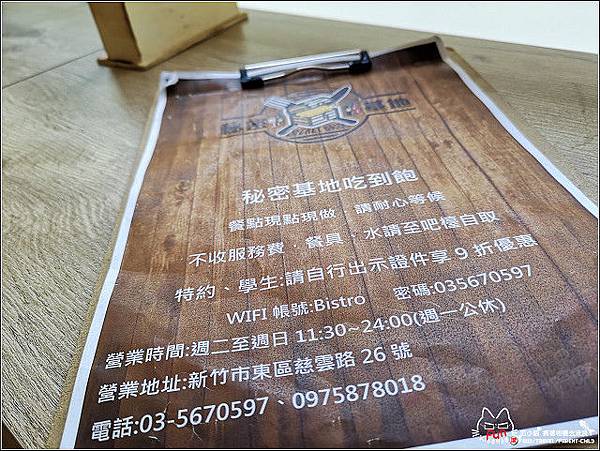 秘密基地
秘密基地吃到飽
餐點現點現做 請耐心等候
不收服務費，餐具、水請至吧檯自取
特約、學生:請自行出示證件享 9 折優惠
WIFI 帳號:Bistro 密碼:035670597
營業時間:週二至週日 11:30~24:00(週一公休)
營業地址:新竹市東區慈雲路 26 號
電話:03-5670597、0975878018